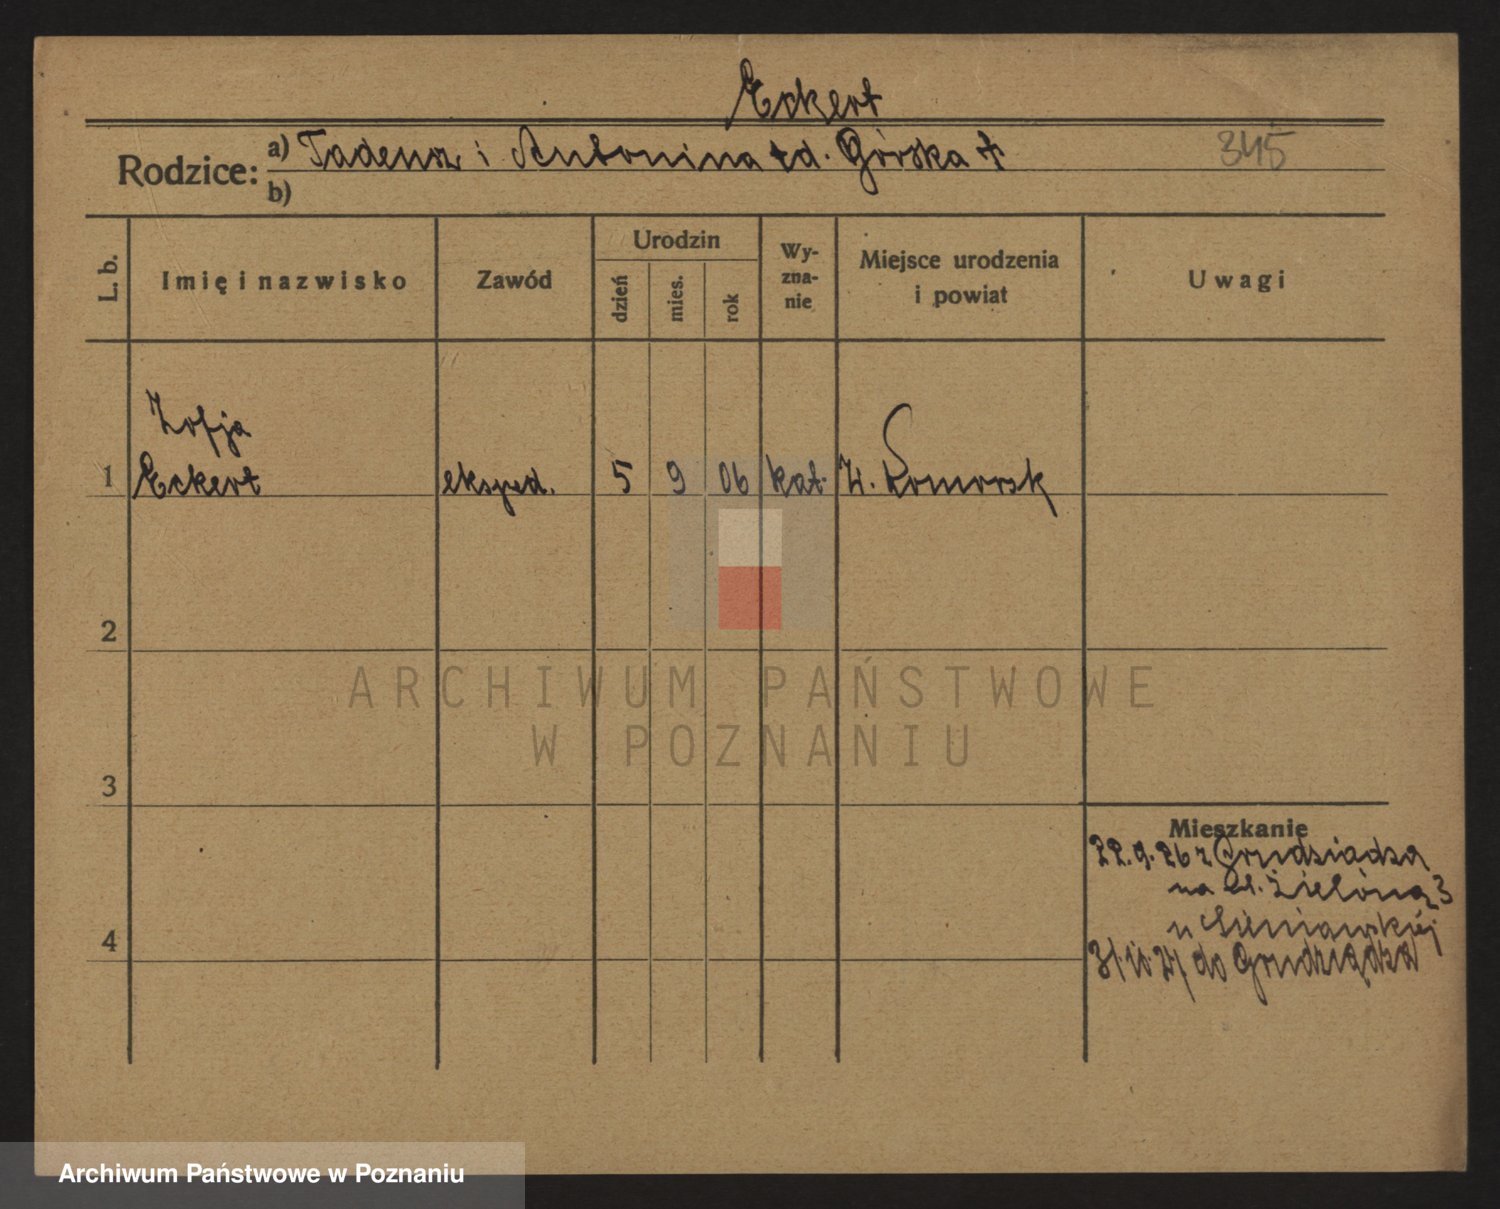 Eckert
Rodzice: a) Tadeusz i Antonina td. Górska
345
b)
L. b. Imię i nazwisko Zawód Urodzin dzień mies. rok Wy-zna-nie Miejsce urodzenia i powiat Uwagi
Zofja
1 Eckert eksped. 5 9 06 kat. W. Komorsk
2
3
Mieszkanie
22.9.26 z Grudziądza
na ul. Zieloną 3
u Sieniawskiej
4
31.10.27 do Grudziądza
ARCHIWUM PAŃSTWOWE
W POZNANIU
Archiwum Państwowe w Poznaniu